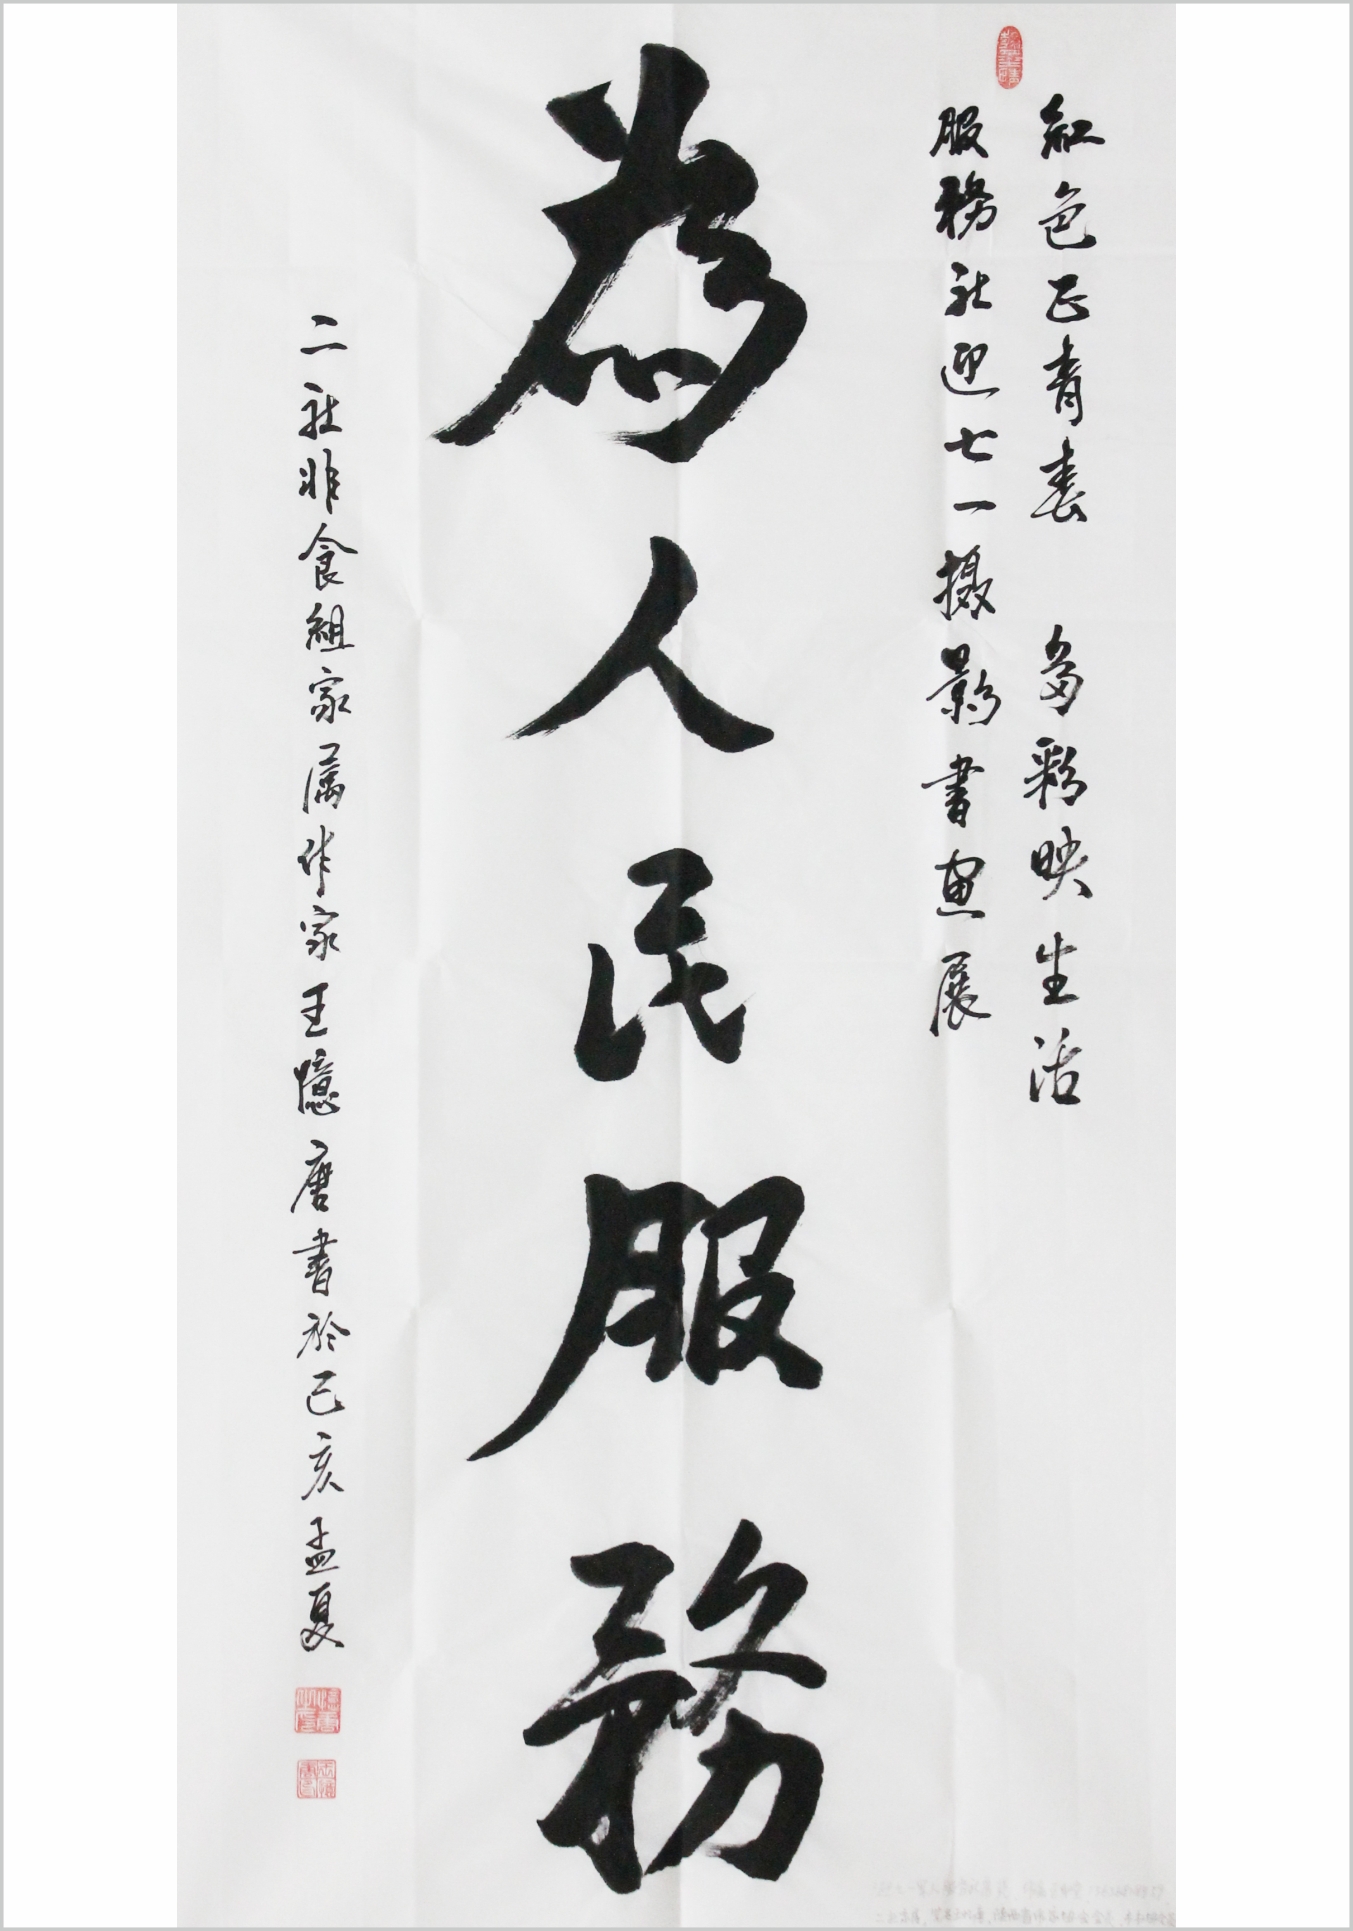 紅色正青春 多彩映生活
服務社迎七一摄影書画展
為人民服務
二社非食組家属作家王憶唐書於己亥孟夏